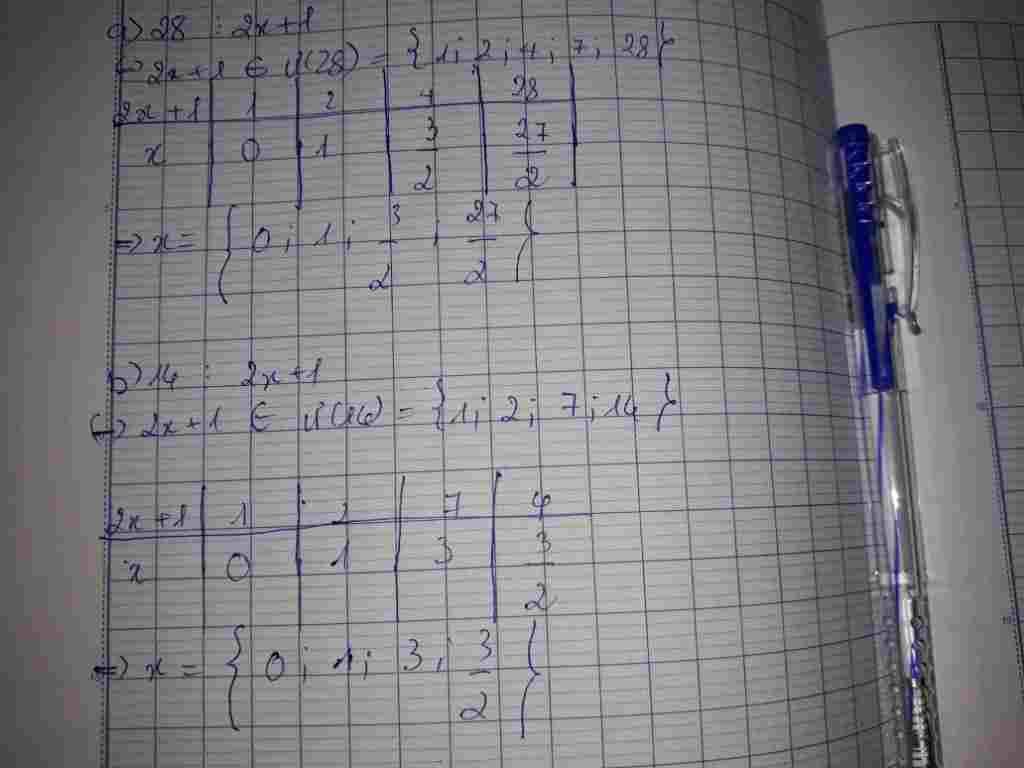 a) 28 : 2x+1
=> 2x+1 ∈ Ư(28) = {1; 2; 4; 7; 28}
2x+1 | 1 | 2 | 4 | 28
x | 0 | 1 | 3/2 | 27/2
=> x = {0; 1; 3/2; 27/2}
b) 14 : 2x+1
=> 2x+1 ∈ Ư(14) = {1; 2; 7; 14}
2x+1 | 1 | 2 | 7 | 4
x | 0 | 1 | 3 | 3/2
=> x = {0; 1; 3; 3/2}